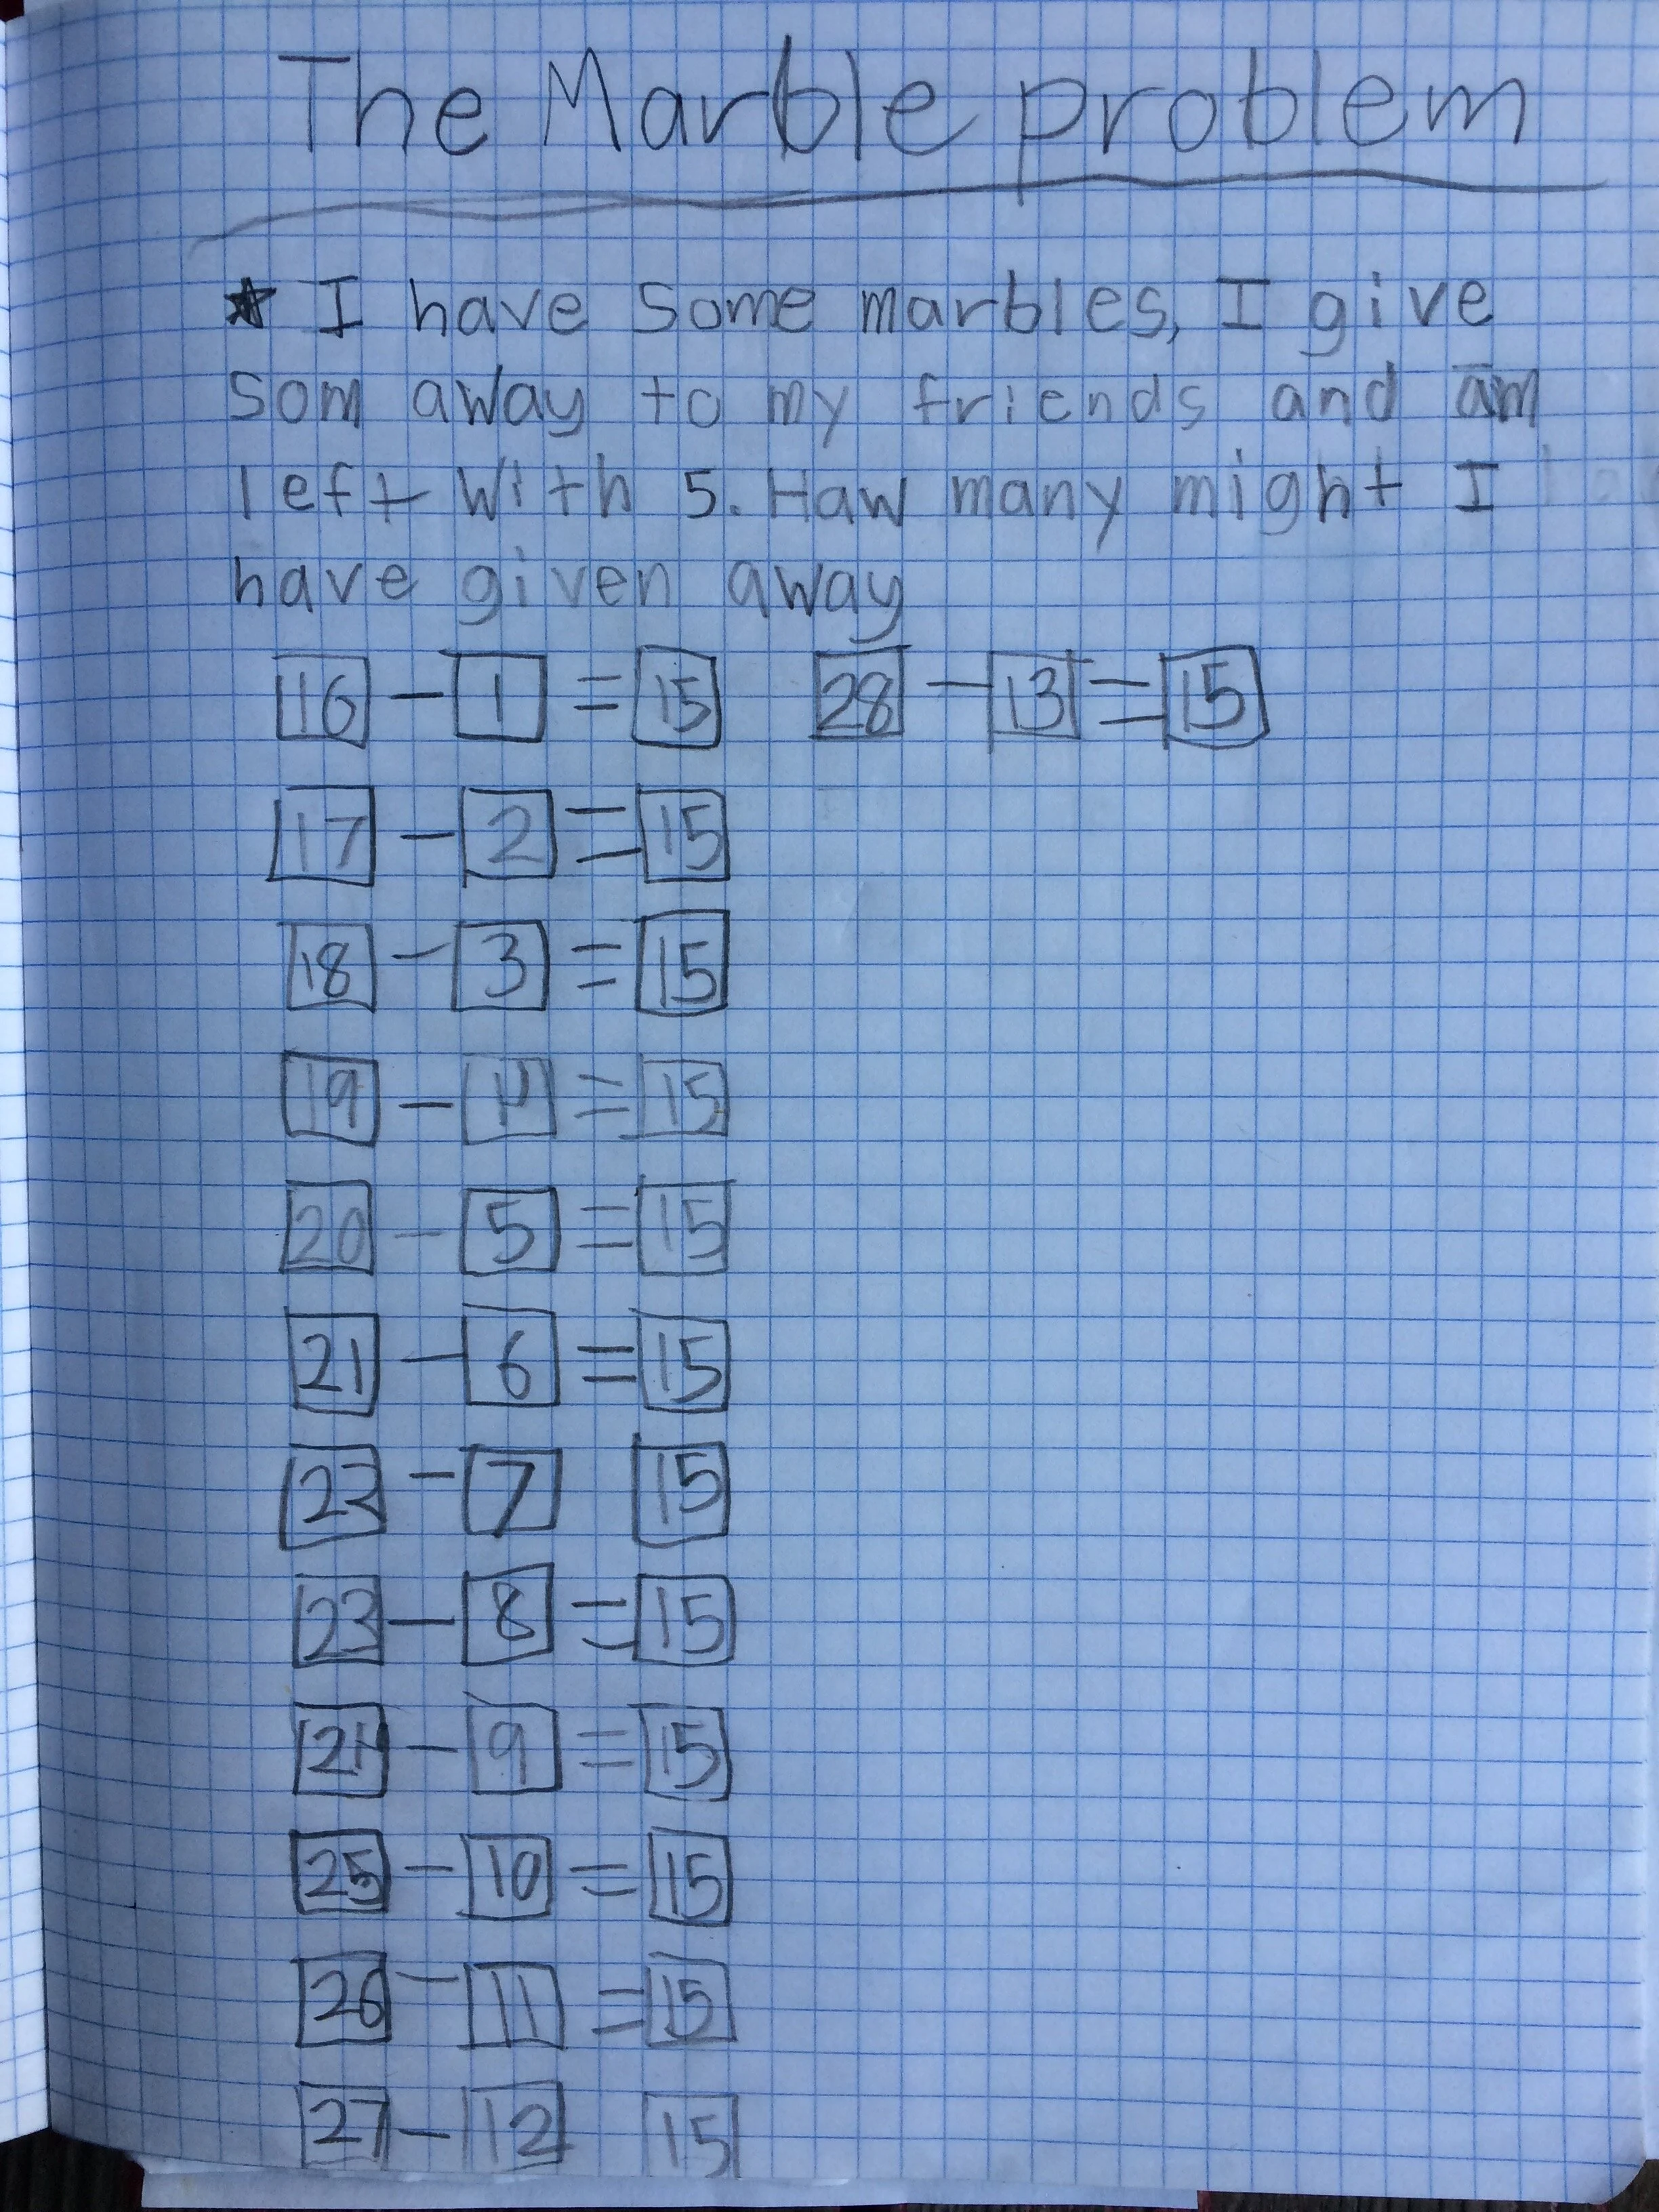 The Marble problem
★ I have some marbles, I give
som away to my friends and am
left with 5. Haw many might I
have given away
16 - 1 = 15 28 - 13 = 15
17 - 2 = 15
18 - 3 = 15
19 - 4 = 15
20 - 5 = 15
21 - 6 = 15
22 - 7 15
23 - 8 = 15
24 - 9 = 15
25 - 10 = 15
26 - 11 = 15
27 - 12 15